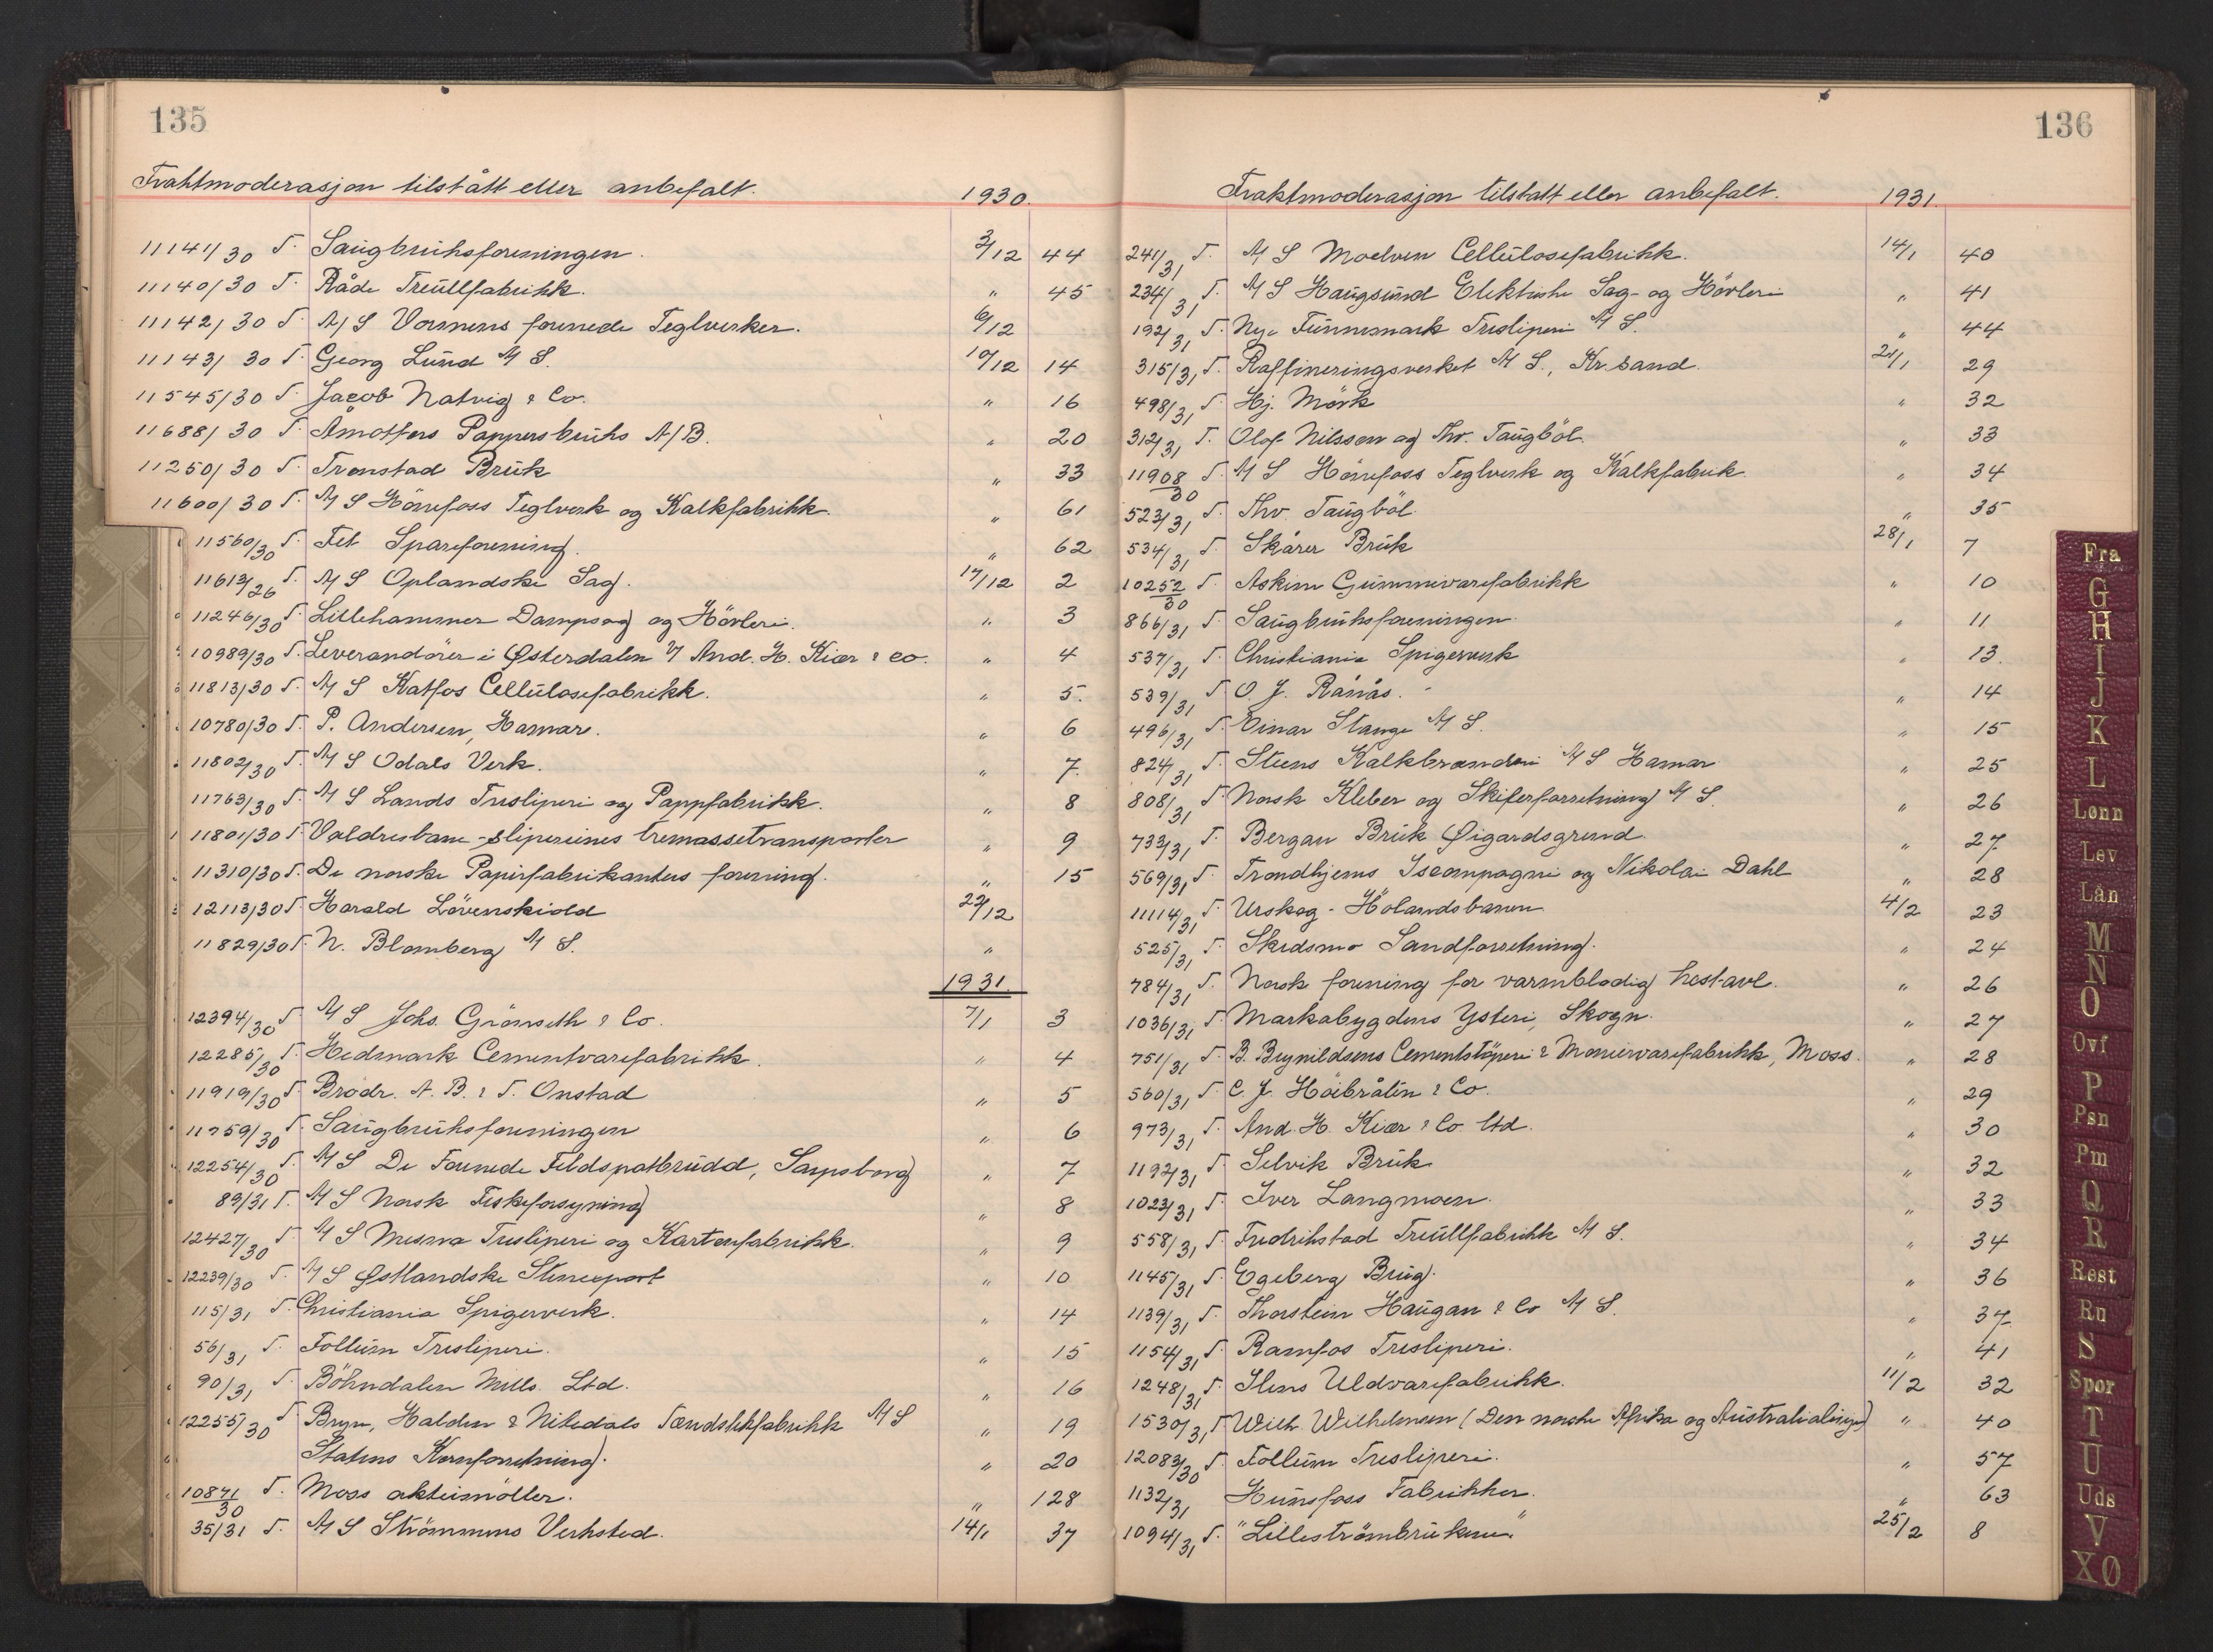 135
Fraktmoderasjon tilstått eller anbefalt. 1930.
11141/30 T. Saugbruksforeningen. 3/12 44
11140/30 T. Råde Treullfabrikk. " 45
11142/30 T. A/S Vormens forenede Teglverker. 6/12
11143/30 T. Georg Lund A/S. 10/12 14
11545/30 T. Jacob Natvig & Co. " 16
11688/30 T. Åmotfors Pappersbruks A/B. " 20
11250/30 T. Tronstad Bruk " 33
11600/30 T. A/S Hönefoss Teglverk og Kalkfabrikk. " 61
11560/30 T. Fet Spareforening. " 62
11613/26 T. A/S Oplandske Sag. 17/12 2
11246/30 T. Lillehammer Dampsag og Hövleri. " 3
10989/30 T. Leverandörer i Østerdalen v/ And. H. Kiær & Co. " 4
11813/30 T. A/S Katfos Cellulosefabrikk. " 5.
10780/30 T. P. Andersen, Hamar. " 6
11802/30 T. A/S Odals Verk. " 7.
11763/30 T. A/S Lands Tresliperi og Pappfabrikk. " 8
11801/30 T. Valdresbane-sliperienes tremassetransporter " 9
11310/30 T. De norske Papirfabrikanters forening. " 15
12113/30 T. Harald Lövenskiold 22/12
11829/30 T. N. Blomberg A/S. "
1931.
12394/30 T. A/S Johs. Grönseth & Co. 7/1 3
12285/30 T. Hedmark Cementvarefabrikk. " 4
11919/30 T. Brödr. A. B. & T. Onstad " 5
11759/30 T. Saugbruksforeningen " 6
12254/30 T. A/S De Forenede Feldspatbrudd, Sarpsborg " 7
89/31 T. A/S Norsk Fiskeforsyning " 8
12427/30 T. A/S Mesna Tresliperi og Kartonfabrikk. " 9
12239/30 T. A/S Østlandske Stenexport " 10
115/31 T. Christiania Spigerverk. " 14
56/31 T. Follum Tresliperi. " 15
90/31 T. Böhnsdalen Mills. Ltd. " 16
12255/30 T. Bryn, Halden & Nitedals Tændstikfabrikk A/S " 19
Statens Kornforretning. " 20
10871/30 T. Moss aktiemöller. " 128
35/31 T. A/S Strömmens Verksted. 14/1 37
136
Fraktmoderasjon tilstått eller anbefalt. 1931.
241/31 T. A/S Moelven Cellulosefabrikk. 14/1 40
234/31 T. A/S Haugsund Elektriske Sag- og Hövleri " 41
192/31 T. Nye Funnemark Tresliperi A/S. " 44
315/31 T. Raffineringsverket A/S., Kr.sand. 21/1 29
498/31 T. Hj. Mörk " 32
312/31 T. Olaf Nilssen og Thv. Taugböl. " 33
11908/30 T. A/S Hönefoss Teglverk og Kalkfabrik. " 34
523/31 T. Thv. Taugböl. " 35
534/31 T. Skårer Bruk 28/1 7
10252/30 T. Askim Gummivarefabrikk " 10
866/31 T. Saugbruksforeningen. " 11
537/31 T. Christiania Spigerverk " 13.
539/31 T. O. J. Rånås. " 14
496/31 T. Einar Stange A/S. " 15
824/31 T. Steens Kalkbrænderi A/S Hamar " 25
808/31 T. Norsk Kleber og Skiferforretning A/S. " 26
733/31 T. Bergan Bruk Øigardsgrend. " 27
569/31 T. Trondhjems Iscompagni og Nikolai Dahl " 28
11114/31 T. Urskog-Hölandsbanen 4/2 23
525/31 T. Skedsmo Sandforretning. " 24
784/31 T. Norsk forening for varmblodig hestavl. " 26
1036/31 T. Markabygdens Ysteri, Skogn. " 27
751/31 T. B. Brynildsens Cementstöperi & Moniervarefabrikk, Moss. " 28
560/31 T. C. J. Höibråten & Co. " 29
973/31 T. And. H. Kiær & Co. Ltd. " 30
1192/31 T. Selvik Bruk " 32
1023/31 T. Iver Langmoen. " 33
558/31 T. Fredrikstad Treullfabrikk A/S. " 34
1145/31 T. Egeberg Brug. " 36
1139/31 T. Thorstein Haugan & Co A/S. " 37.
1154/31 T. Ramfos Tresliperi. " 41
1248/31 T. Ilens Uldvarefabrikk. 11/2 32
1530/31 T. Wilh. Wilhelmsen (Den norske Afrika og Australialinje) " 40
12083/30 T. Follum Tresliperi. " 57
1132/31 Hunsfoss Fabrikker. " 63
1094/31 T. "Lilleströmbrukene" 25/2 8
Fra
G
H
I
J
K
L
Lønn
Lev
Lån
M
N
O
Ovf
P
Psn
Pm
Q
R
Rest
Rn
S
Spor
T
U
Uds
V
XØ